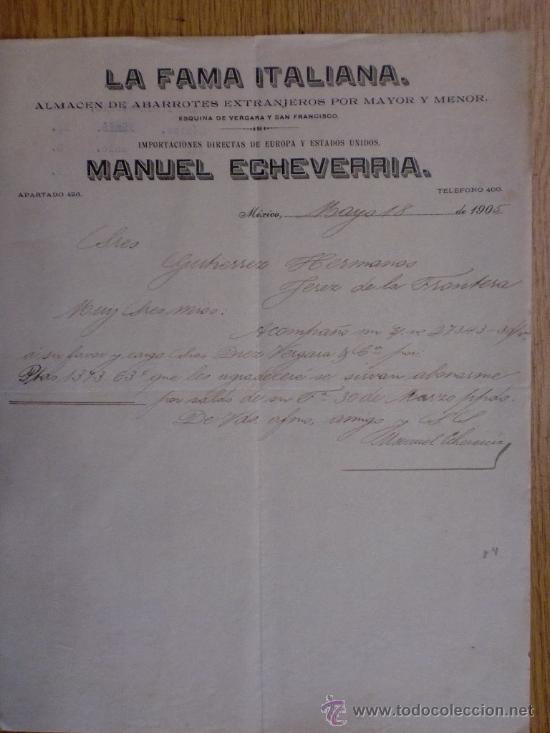 LA FAMA ITALIANA.
ALMACEN DE ABARROTES EXTRANJEROS POR MAYOR Y MENOR.
ESQUINA DE VERGARA Y SAN FRANCISCO.
IMPORTACIONES DIRECTAS DE EUROPA Y ESTADOS UNIDOS.
MANUEL ECHEVERRIA.
APARTADO 426. TELEFONO 400.
México, Mayo 18 de 1905
Sres
Gutierrez Hermanos
Jerez de la Frontera
Muy Sres mios:
Acompaño mi 27343
á su favor y cargo Sres Diez Vergara & Cª por
Ptas 1373 63 que les agradeceré se sirvan abonarme
por saldo de su fª 30 de Marzo ppdo.
De Vds afmo, amigo y SS
Manuel Echeverria
todocoleccion
www.todocoleccion.net